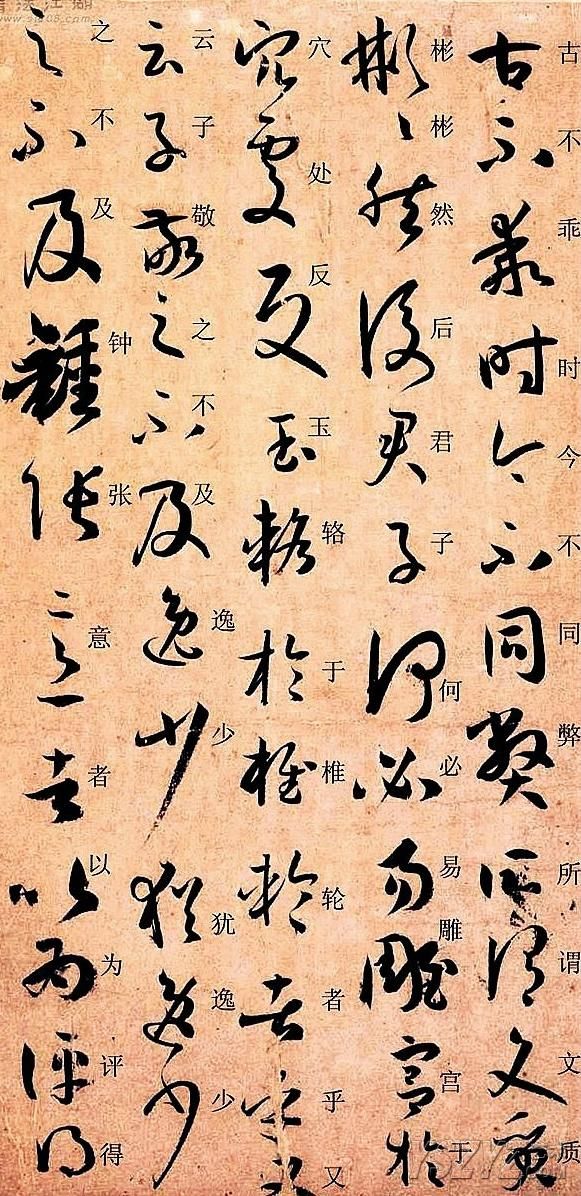 古不乖时今不同弊所谓文质
彬彬然后君子何必易雕宫于
穴处反玉辂于椎轮者乎又
云子敬之不及逸少犹逸少
之不及钟张意者以为评得